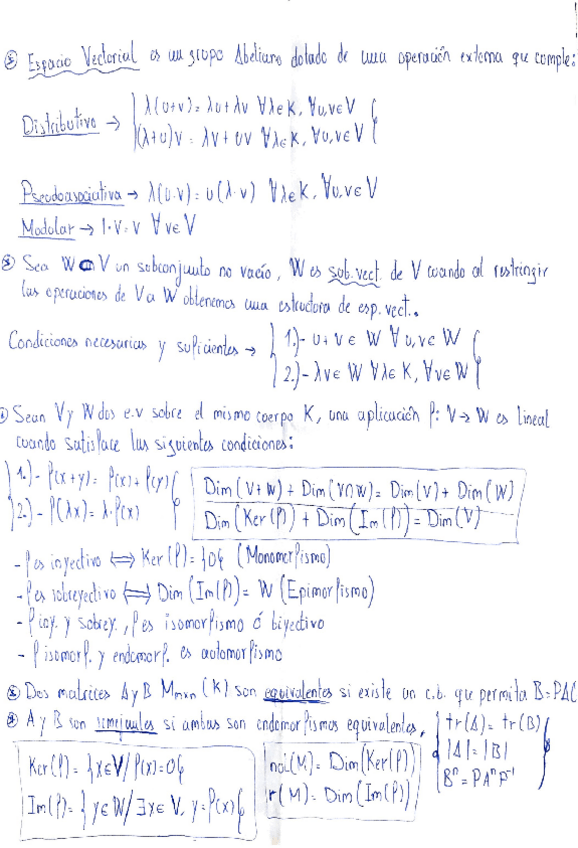 Espacio Vectorial es un grupo Abeliano dotado de una operación externa que cumple:
Distributiva → { λ(u+v)= λu+λv ∀λ∈K, ∀u,v∈V }
{ (λ+u)v = λv+uv ∀λ∈K, ∀u,v∈V }
Pseudoasociativa → λ(u·v) = u(λ·v) ∀λ∈K, ∀u,v∈V
Modular → 1·v=v ∀v∈V
Sea W V un subconjunto no vacío, W es sub.vect. de V cuando al restringir
las operaciones de V a W obtenemos una estructura de esp. vect..
Condiciones necesarias y suficientes → { 1.)- u+v∈ W ∀u,v∈ W }
{ 2.)- λv∈ W ∀λ∈ K, ∀v∈W }
Sean V y W dos e.v sobre el mismo cuerpo K, una aplicación f: V→W es lineal
cuando satisface las siguientes condiciones:
{ 1.)- f(x+y)= f(x)+f(y) }
{ 2.)- f(λx)=λ·f(x) }
Dim(V+W) + Dim(V∩W)= Dim(V)+Dim(W)
Dim(Ker(f)) + Dim(Im(f))=Dim(V)
- f es inyectivo ⟺ Ker(f)={0} (Monomorfismo)
- f es sobreyectivo ⟺ Dim(Im(f))= W (Epimorfismo)
- f iny. y sobrey., f es isomorfismo ó biyectivo
- f isomorf. y endomorf. es automorfismo
Dos matrices A y B Mmxn(K) son equivalentes si existe un c.b. que permita B=PAC
A y B son semejantes si ambas son endomorfismos equivalentes, { tr(A)= tr(B)
|A|=|B|
Bⁿ=PAⁿP⁻¹ }
Ker(f)= {x∈V/ f(x)=0}
Im(f)= {y∈W/ ∃x∈V, y=f(x)}
nul(M)= Dim(Ker(f))
r(M)= Dim(Im(f))